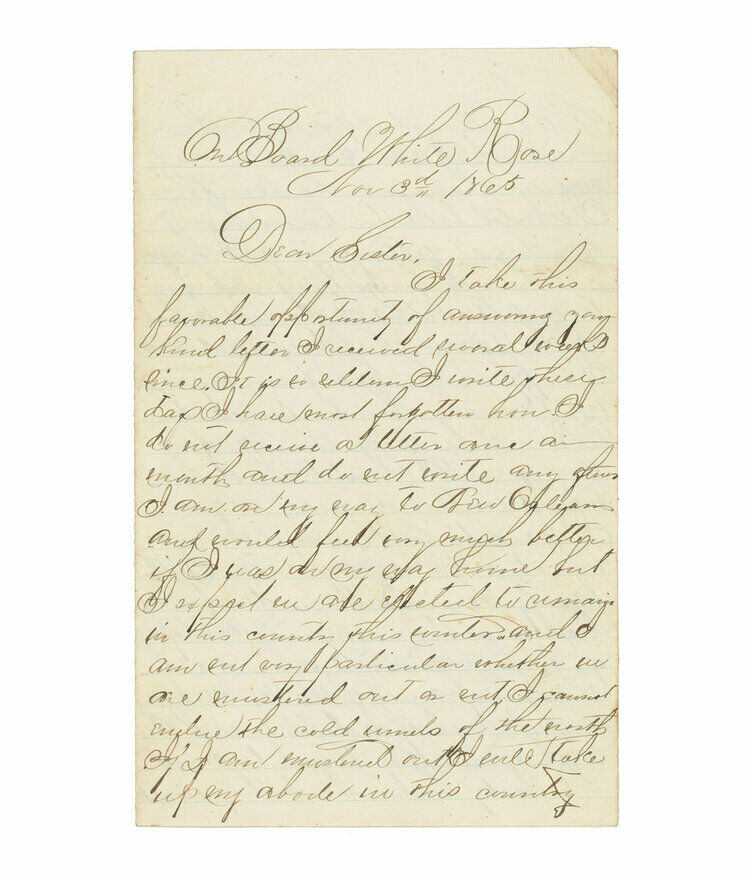 On Board White Rose
Nov 3d 1865
Dear Sister,
I take this
favorable opportunity of answering your
kind letter I received several weeks
since. It is so seldom I write these
days I have most forgotten how. I
do not receive a letter once a
month and do not write any often
I am on my way to New Orleans
and would feel very much better
if I was on my way home but
I expect we are elected to remain
in this country this winter. and I
am not very particular whether we
are mustered out or not, I cannot
endure the cold winds of the north
If I am mustered out I will take
up my abode in this country